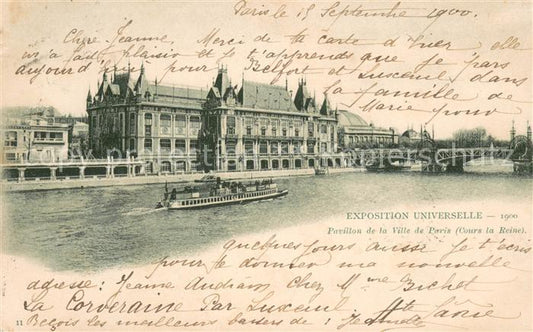 Paris le 15 Septembre 1900.
Chère Jeanne, Merci de ta carte d'hier elle
m'a fait plaisir et je t'apprends que je pars
aujourd'hui pour Belfort and Luxeuil dans
la famille de
Marie pour
EXPOSITION UNIVERSELLE — 1900
Pavillon de la Ville de Paris (Cours la Reine).
quelques jours aussi je t'écris
pour te donner ma nouvelle
adresse: Jeanne Andrians Chez Mme Buchet
La Corveraine Par Luxeuil Hte Saône
11 Reçois les meilleurs baisers de: Jeanne